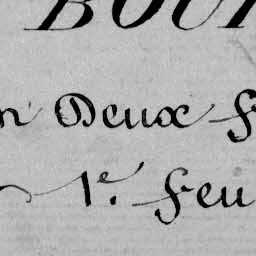 BOU
n Deux F
1e. Feu